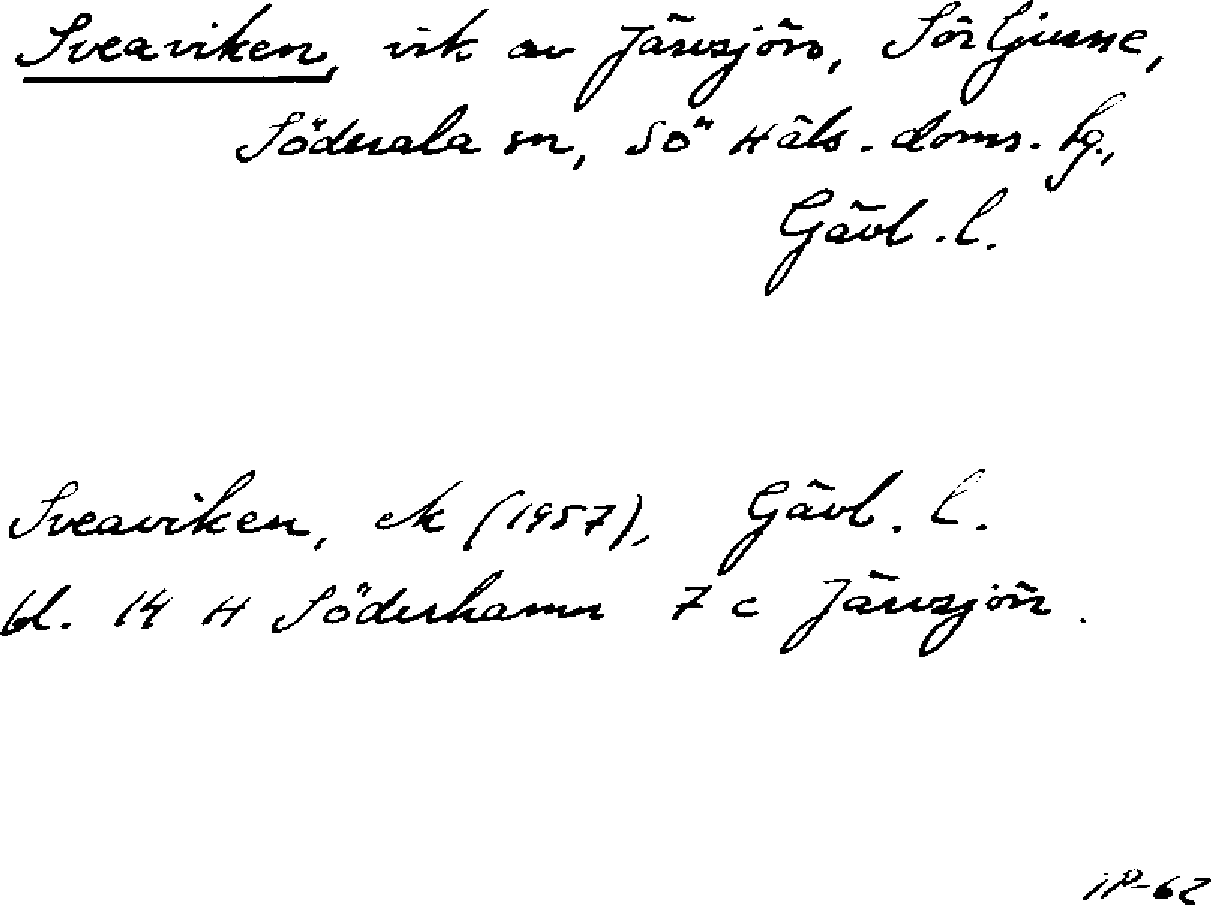 Sveaviken, vik av Järvsjön, Sörljusne,
Söderala sn, Sö Häls. doms. hg.,
Gävl. l.
Sveaviken, ek (1957), Gävl. l.
bl. 14 H Söderhamn 7 c Järvsjön.
IP-62